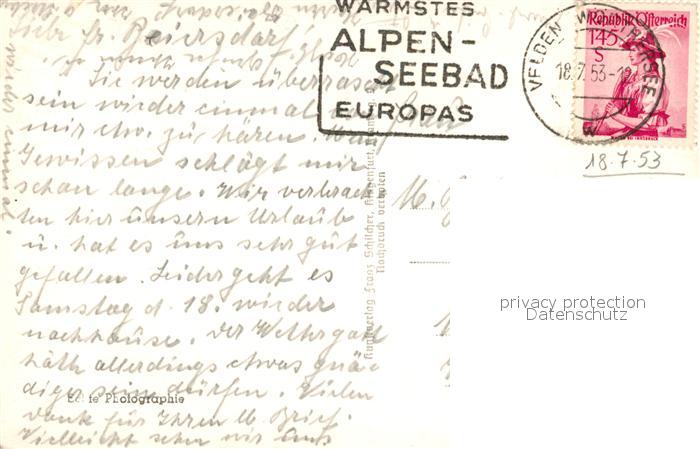 WÄRMSTES
ALPEN-
SEEBAD
EUROPAS
VELDEN WÖRTHERSEE
18.7.53-1
w
Republik Österreich
145
S
18.7.53
Liebe Fr. Beiersdorf
Sie werden überrascht
sein wieder einmal von
mir etw. zu hören. Das
Gewissen schlägt mir
schon lange. Wir verbrach-
ten hier unsern Urlaub
u. hat es uns sehr gut
gefallen. Leider geht es
Samstag d. 18. wieder
nachhause. Der Wettergott
hätte allerdings etwas gnä-
diger sein dürfen. Vielen
Dank für Ihren lb. Brief.
Vielleicht sehn wir uns
wieder einmal.
Echte Photographie
Kunstverlag Franz Schilcher, Klagenfurt,
Nachdruck verboten
M.
privacy protection
Datenschutz